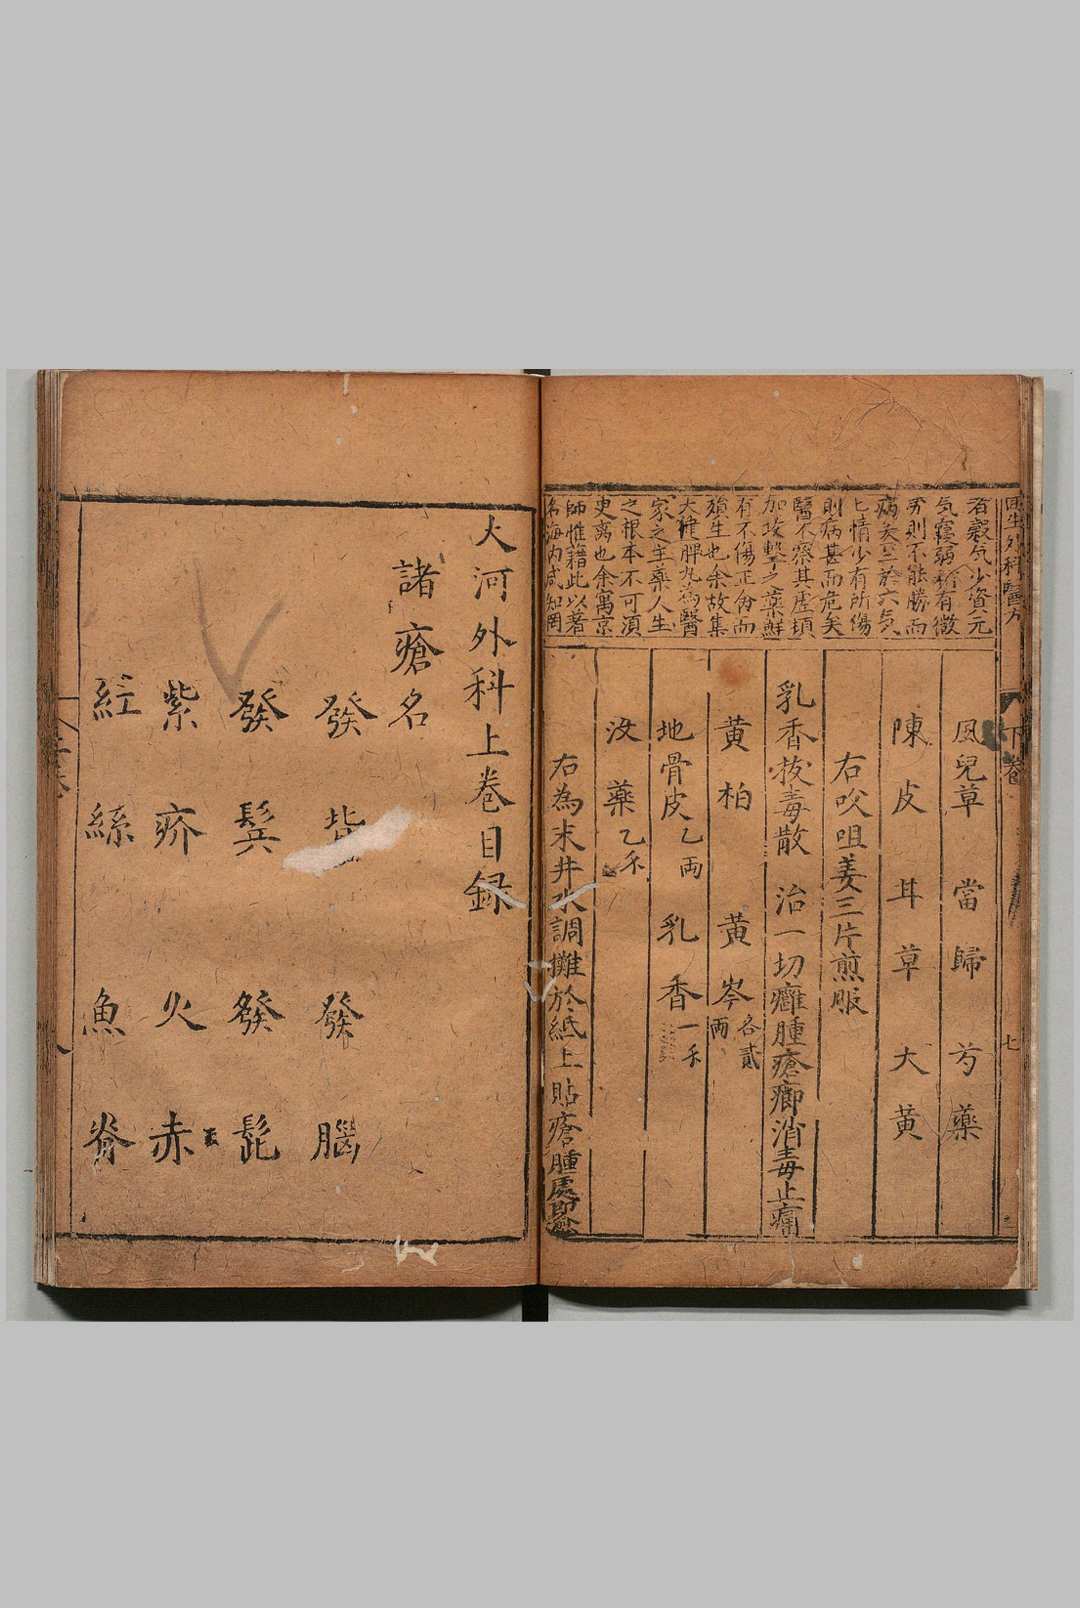 回生外科醫方
下卷
七
者穀气少資元
気寖弱稍有微
労則不能勝而
病矣至於六気
七情少有所傷
則病甚而危矣
醫不察其虛頊
加攻擊之藥鮮
有不傷正爾而
殞生也余故集
大健脾丸為醫
家之主藥人生
之根本不可湏
吏离也余寓京
師惟藉此以著
名海内咸知罔
鳳兒草 當歸 芍藥
陳皮 耳草 大黄
右㕮咀姜三片煎服
乳香拔毒散 治一切癰腫瘡癤消毒止痛
黄柏 黄岑各貳兩
地骨皮乙兩 乳香一乑
没藥乙乑
右為末井水調攤於紙上貼瘡腫處即愈
大河外科上卷目録
諸瘡名
發背 發腦
發鬓 發髭
紫疥 火赤
紅絲 魚脊